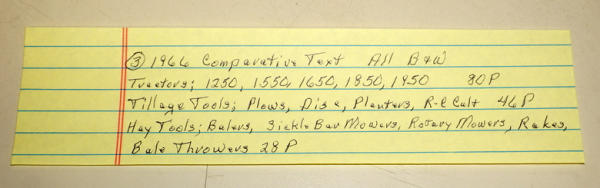 ③ 1966 Comparative Text All B&W
Tractors; 1250, 1550, 1650, 1850, 1950 80P
Tillage Tools; Plows, Disc, Planters, R-C Cult 46P
Hay Tools; Balers, Sickle Bar Mowers, Rotary Mowers, Rakes,
Bale Throwers 28P